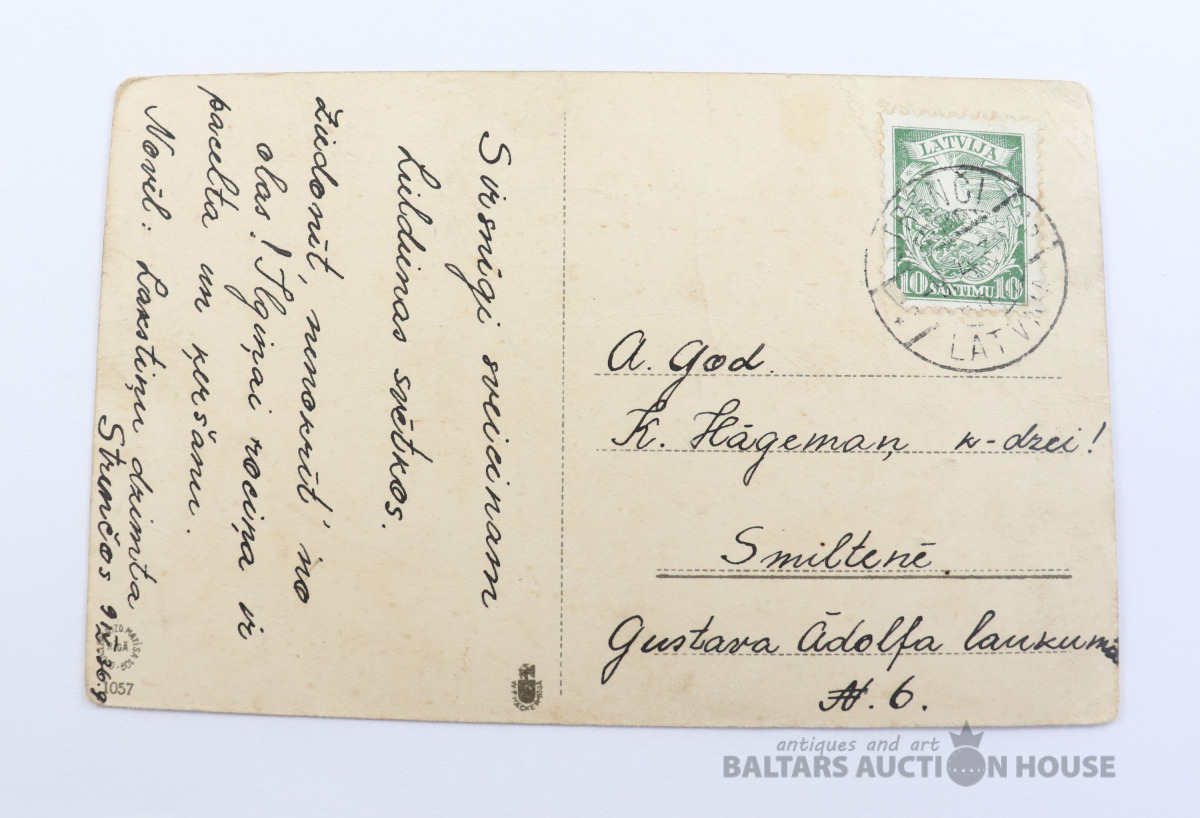 Sirsnīgi sveicinam
Lieldienas svētkos.
Žiedonīt, nenokrīt' no
olas! Ilgiņai rociņa ir
pacelta un ķeršanu.
Novēl: Lakstiņu dzimta
Strenčos 9/IV-36.g
1057
LATVIJA
10 SANTIMU 10
LATVIJA
A. God.
K. Hāgeman, k-dzei!
Smiltenē.
Gustava Ādolfa laukumā
N. 6.
antiques and art
BALTARS AUCTION HOUSE